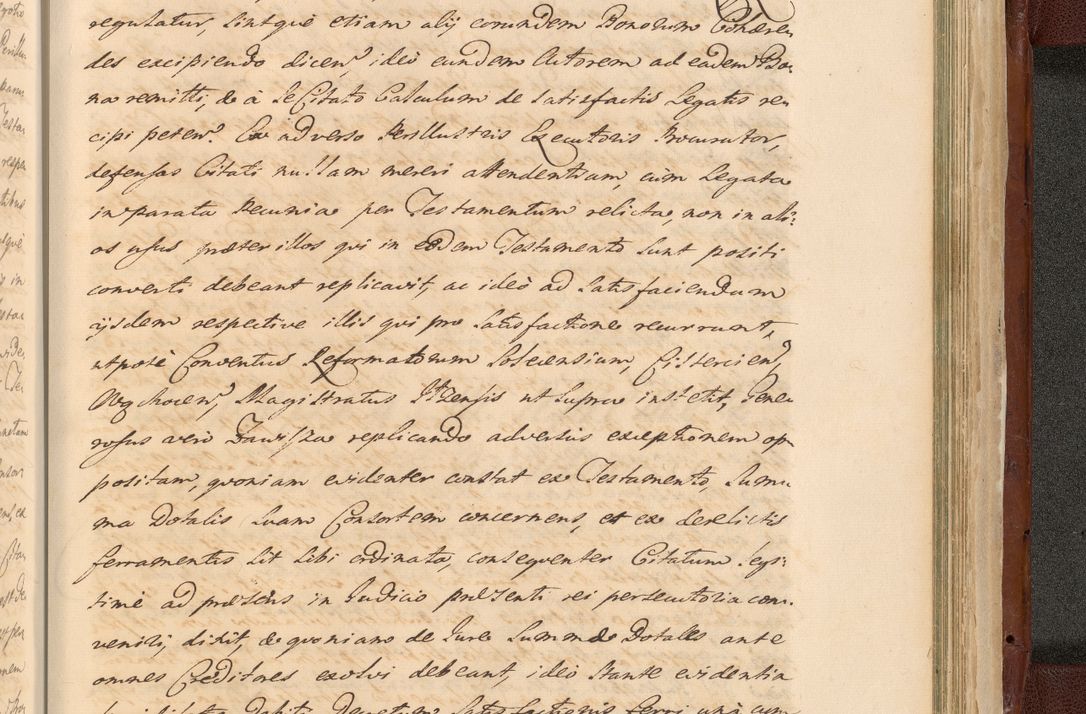 regulatur, sintquè etiam alij eorundem Bonorum Condæren
des excipiendo dicen? ideò eundem Actorem ad eadem Bo-
na remitti, & à se Citato Calculum de satisfactis Legatis re-
cipi peten? Ex adverso Perillustris Executoris Procurator,
defensas Citati nullam mereri attendentiam, cùm Legata
in parata Pecunia per Testamentum relicta, non in ali-
os usus præter illos qvi in eodem Testamento sunt positi
converti debeant replicavit, ac ideò ad satisfaciendum
ijsdem respective illis qvi pro satisfactione recurrunt,
utpotè Conventus Reformatorum Solecensium, Cistercien?
Wąchocen? Magistratus Ilzensis ut supra institit, Gene-
rosus verò Zawisza replicando adversùs exceptionem op-
positam, qvoniam evidenter constat ex Testamento, sum-
ma Dotalis suam Consortem concernens, et ex derelictis
ferramentis sit sibi ordinata, consequenter Citatum legi-
timè ad præsens in Judicio præsenti rei persecutoria con-
veniri, dixit, & qvoniam de Jure summæ Dotales ante
omnes Creditores exolvi debeant, ideò stante evidentia
Debiti Decretum satisfactionis ferri unà cum